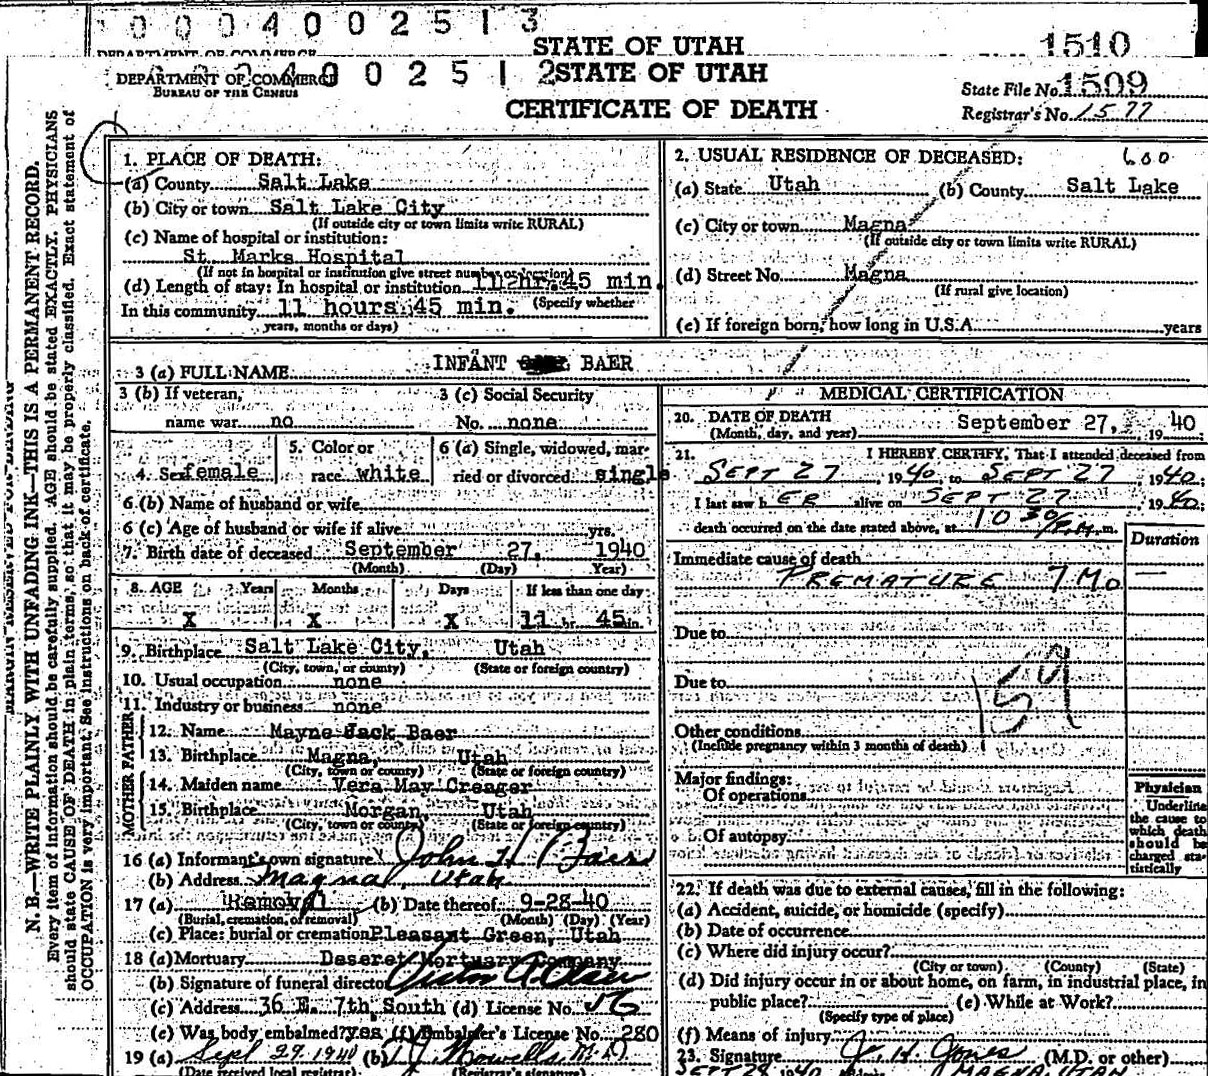 0 0 0 4 0 0 2 5 1 3
STATE OF UTAH 1510
DEPARTMENT OF COMMERCE
DEPARTMENT OF COMMERCE 4 0 0 2 5 1 2 STATE OF UTAH
BUREAU OF THE CENSUS
CERTIFICATE OF DEATH
State File No. 1509
Registrar's No. 1577
N. B.—WRITE PLAINLY WITH UNFADING INK—THIS IS A PERMANENT RECORD.
Every item of information should be carefully supplied. AGE should be stated EXACTLY. PHYSICIANS
should state CAUSE OF DEATH in plain terms, so that it may be properly classified. Exact statement of
OCCUPATION is very important. See instructions on back of certificate.
1. PLACE OF DEATH:
(a) County Salt Lake
(b) City or town Salt Lake City
(If outside city or town limits write RURAL)
(c) Name of hospital or institution:
St. Marks Hospital
(If not in hospital or institution give street number or location)
(d) Length of stay: In hospital or institution 11 hr. 45 min.
In this community 11 hours 45 min. (Specify whether
years, months or days)
2. USUAL RESIDENCE OF DECEASED: 600
(a) State Utah (b) County Salt Lake
(c) City or town Magna
(If outside city or town limits write RURAL)
(d) Street No. Magna
(If rural give location)
(e) If foreign born, how long in U.S.A. years
3 (a) FULL NAME INFANT BAER
3 (b) If veteran, 3 (c) Social Security
name war no No. none
4. Sex female 5. Color or race white 6 (a) Single, widowed, married or divorced single
6 (b) Name of husband or wife
6 (c) Age of husband or wife if alive yrs.
7. Birth date of deceased September 27, 1940
(Month) (Day) Year)
8. AGE Years Months Days If less than one day
X X X 11 hr. 45 min.
9. Birthplace Salt Lake City, Utah
(City, town, or county) (State or foreign country)
10. Usual occupation none
11. Industry or business none
FATHER
12. Name Mayne Jack Baer
13. Birthplace Magna, Utah
(City, town or county) (State or foreign country)
MOTHER
14. Maiden name Vera May Creager
15. Birthplace Morgan, Utah
(City, town or county) (State or foreign country)
16 (a) Informant's own signature John H
(b) Address Magna, Utah
17 (a) Removal (b) Date thereof 9-28-40
(Burial, cremation, or removal) (Month) (Day) (Year)
(c) Place: burial or cremation Pleasant Green, Utah
18 (a) Mortuary Deseret Mortuary Company
(b) Signature of funeral director
(c) Address 36 E. 7th South (d) License No. 56
(e) Was body embalmed? yes (f) Embalmer's License No. 280
19 (a) Sept 29. 1940 (b)
(Date received local registrar) (Registrar's signature)
MEDICAL CERTIFICATION
20. DATE OF DEATH September 27, 19 40
(Month, day, and year)
21. I HEREBY CERTIFY, That I attended deceased from
SEPT 27, 19 40, to SEPT 27, 19 40;
I last saw h ER alive on SEPT 27, 19 40;
death occurred on the date stated above, at 10 30 P.M. m.
Duration
Immediate cause of death
PREMATURE 7 MO —
Due to
159
Due to
Other conditions
(Include pregnancy within 3 months of death)
Major findings:
Of operations
Of autopsy
Physician
Underline
the cause to
which death
should be
charged sta-
tistically
22. If death was due to external causes, fill in the following:
(a) Accident, suicide, or homicide (specify)
(b) Date of occurrence
(c) Where did injury occur?
(City or town) (County) (State)
(d) Did injury occur in or about home, on farm, in industrial place, in
public place? (e) While at Work?
(Specify type of place)
(f) Means of injury
23. Signature J. H. Jones (M.D. or other)
SEPT 28 1940 Address MAGNA, UTAH